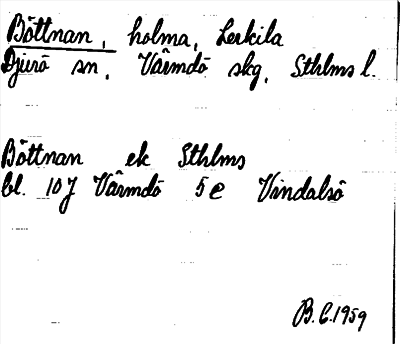 Böttnan, holma, Lerkila
Djurö sn, Värmdö skg, Sthlms l.
Böttnan ek Sthlms
bl. 10J Värmdö 5e Vindalsö
B.C.1959